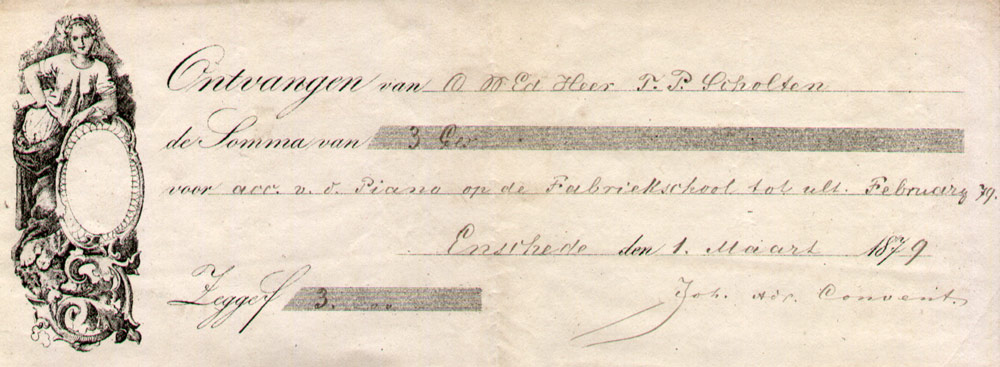 Ontvangen van O W Ed Heer T. P. Scholten
de Somma van 3 Gld.
voor acc. v. d. Piano op de Fabriekschool tot ult. February 79.
Enschede den 1. Maart 1879
Zegge f 3.
Joh. Adr. Convent.